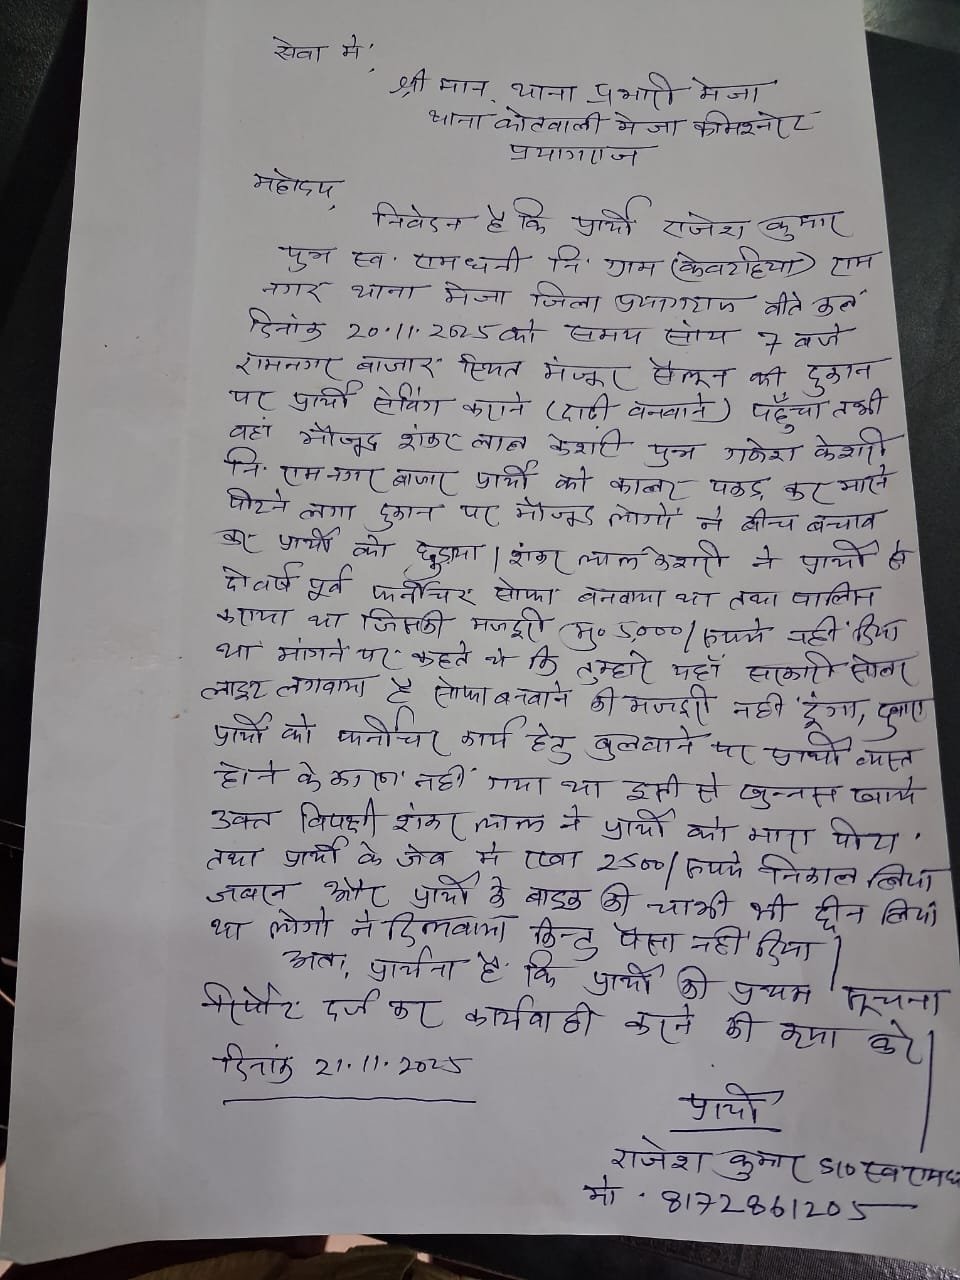 सेवा में,
श्री मान् थाना प्रभारी मेजा
थाना कोतवाली मेजा कमिश्नरेट
प्रयागराज
महोदय,
निवेदन है कि प्रार्थी राजेश कुमार
पुत्र स्व. रामधनी नि. ग्राम (केवटहिया) राम
नगर थाना मेजा जिला प्रयागराज बीते कल
दिनांक 20.11.2025 को समय सांय 7 बजे
रामनगर बाजार स्थित मंजूर सैलून की दुकान
पर प्रार्थी सेविंग कराने (दाढ़ी बनवाने) पहुँचा तभी
वहां मौजूद शंकर लाल केशरी पुत्र गणेश केशरी
नि. रामनगर बाजार प्रार्थी को कालर पकड़ कर मारने
पीटने लगा दुकान पर मौजूद लोगों ने बीच बचाव
कर प्रार्थी को छुड़ाया। शंकर लाल केशरी ने प्रार्थी से
दो वर्ष पूर्व फर्नीचर सोफा बनवाया था तथा पालिस
कराया था जिसकी मजदूरी मु० 5,000/ रुपये नहीं दिया
था मांगने पर कहते थे कि तुम्हारे यहाँ सरकारी सोलर
लाइट लगवाया है सोफा बनवाने की मजदूरी नहीं दूंगा, दुबारा
प्रार्थी को फर्नीचर कार्य हेतु बुलवाने पर प्रार्थी व्यस्त
होने के कारण नहीं गया था इसी से खुन्नस खाये
उक्त विपक्षी शंकर लाल ने प्रार्थी को मारा पीटा
तथा प्रार्थी के जेब में रखा 2500/ रुपये निकाल लिया
जबरन और प्रार्थी के बाइक की चाभी भी छीन लिया
था लोगो ने दिलवाया किन्तु पैसा नहीं दिया।
अतः प्रार्थना है कि प्रार्थी की प्रथम सूचना
रिपोर्ट दर्ज कर कार्यवाही करने की कृपा करें।
दिनांक 21.11.2025
प्रार्थी
राजेश कुमार S/O स्व रामध
मो. 8172861205